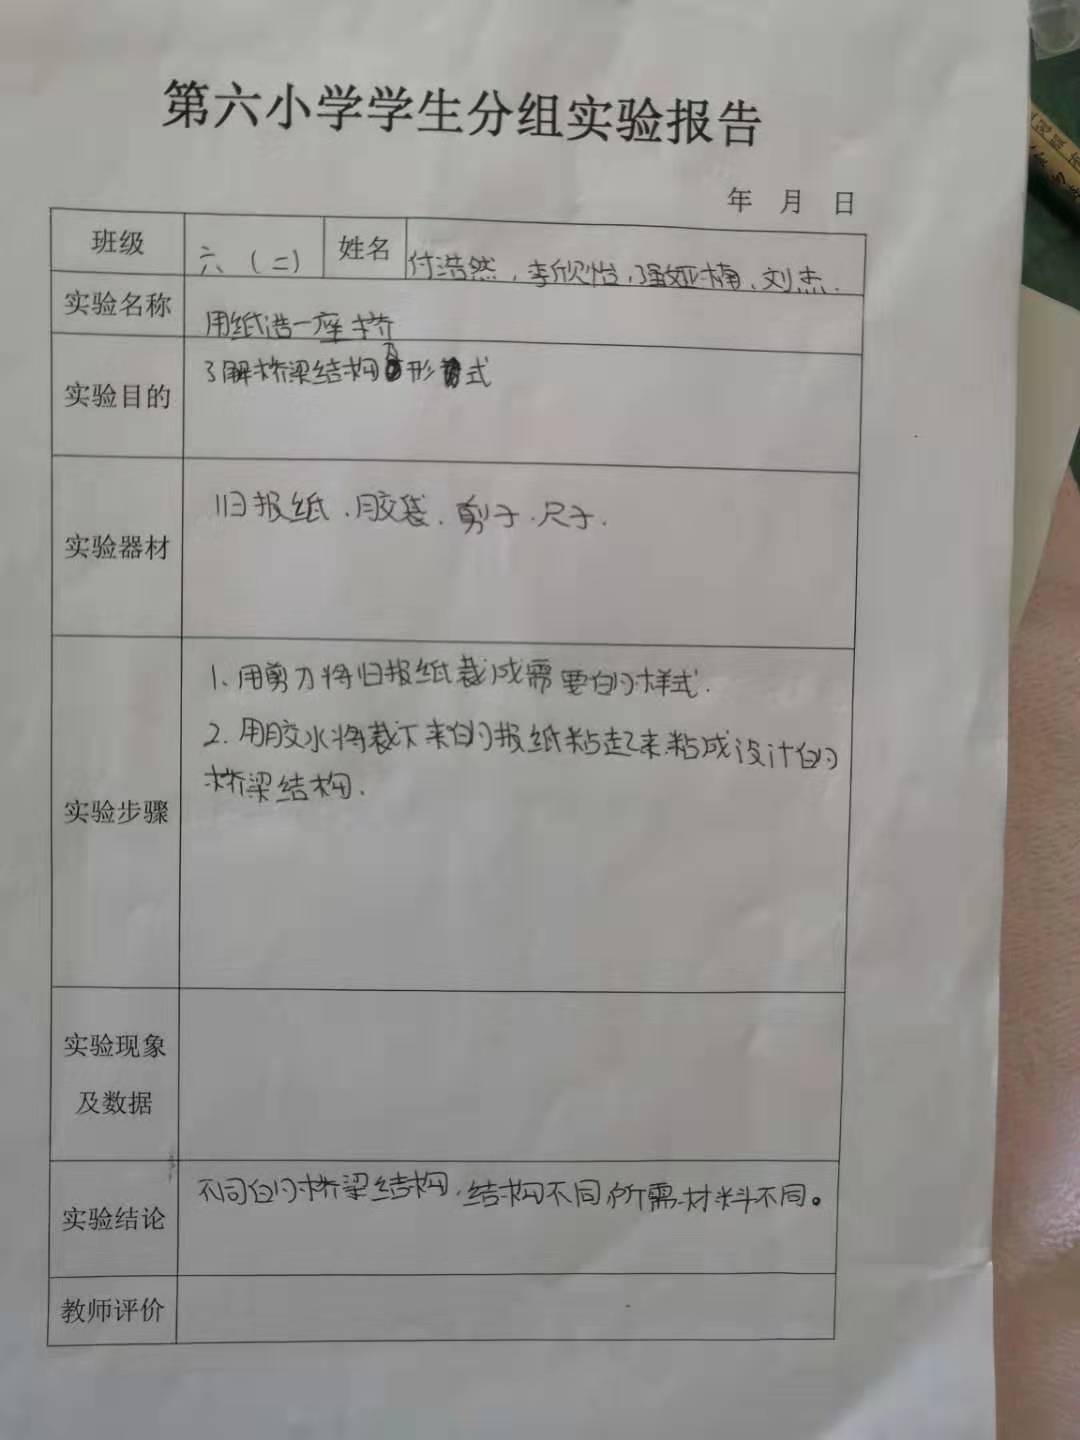 第六小学学生分组实验报告
年 月 日
班级 六（二） 姓名 付浩然，李欣怡，强娅楠，刘杰.
实验名称 用纸造一座桥
实验目的 了解桥梁结构的形式
实验器材 旧报纸、胶袋、剪子、尺子.
实验步骤
1、用剪刀将旧报纸裁成需要的样式.
2.用胶水将裁下来的报纸粘起来.粘成设计的
桥梁结构.
实验现象
及数据
实验结论 不同的桥梁结构，结构不同所需材料不同。
教师评价